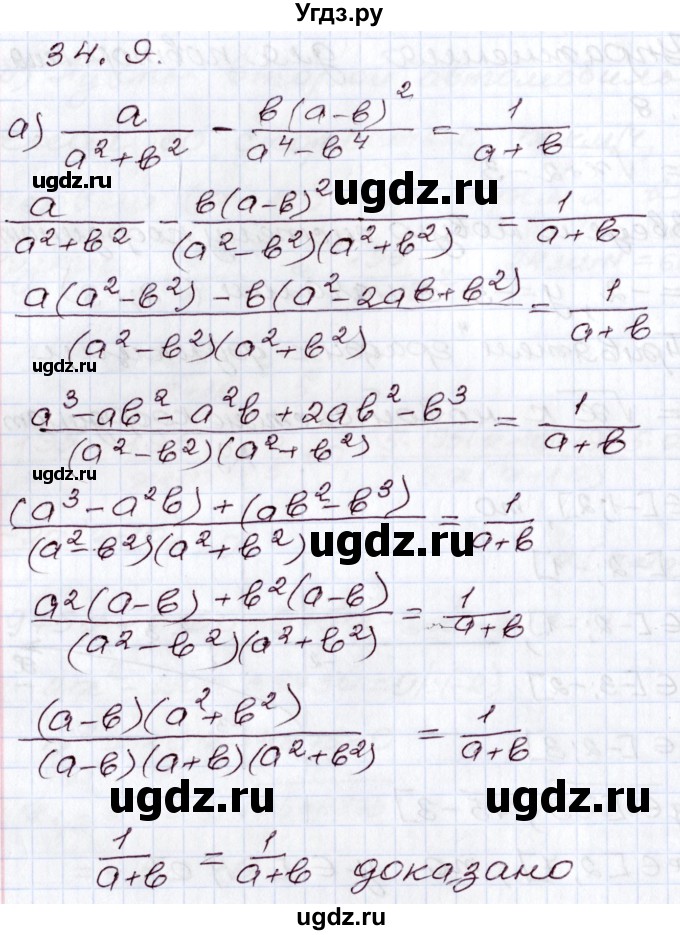 Угдз.ру
34.9.
а) a/(a²+b²) − b(a−b)²/(a⁴−b⁴) = 1/(a+b)
ugdz.ru
ugdz.ru
a/(a²+b²) − b(a−b)²/((a²−b²)(a²+b²)) = 1/(a+b)
(a(a²−b²) − b(a²−2ab+b²))/((a²−b²)(a²+b²)) = 1/(a+b)
ugdz.ru
(a³−ab²−a²b+2ab²−b³)/((a²−b²)(a²+b²)) = 1/(a+b)
ugdz.ru
((a³−a²b)+(ab²−b³))/((a²−b²)(a²+b²)) = 1/(a+b)
ugdz.ru
(a²(a−b)+b²(a−b))/((a²−b²)(a²+b²)) = 1/(a+b)
((a−b)(a²+b²))/((a−b)(a+b)(a²+b²)) = 1/(a+b)
ugdz.ru
ugdz.ru
1/(a+b) = 1/(a+b) доказано
ugdz.ru